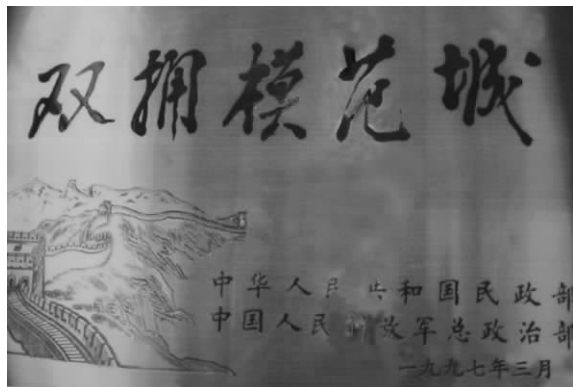 双拥模范城
中华人民共和国民政部
中国人民解放军总政治部
一九九七年三月